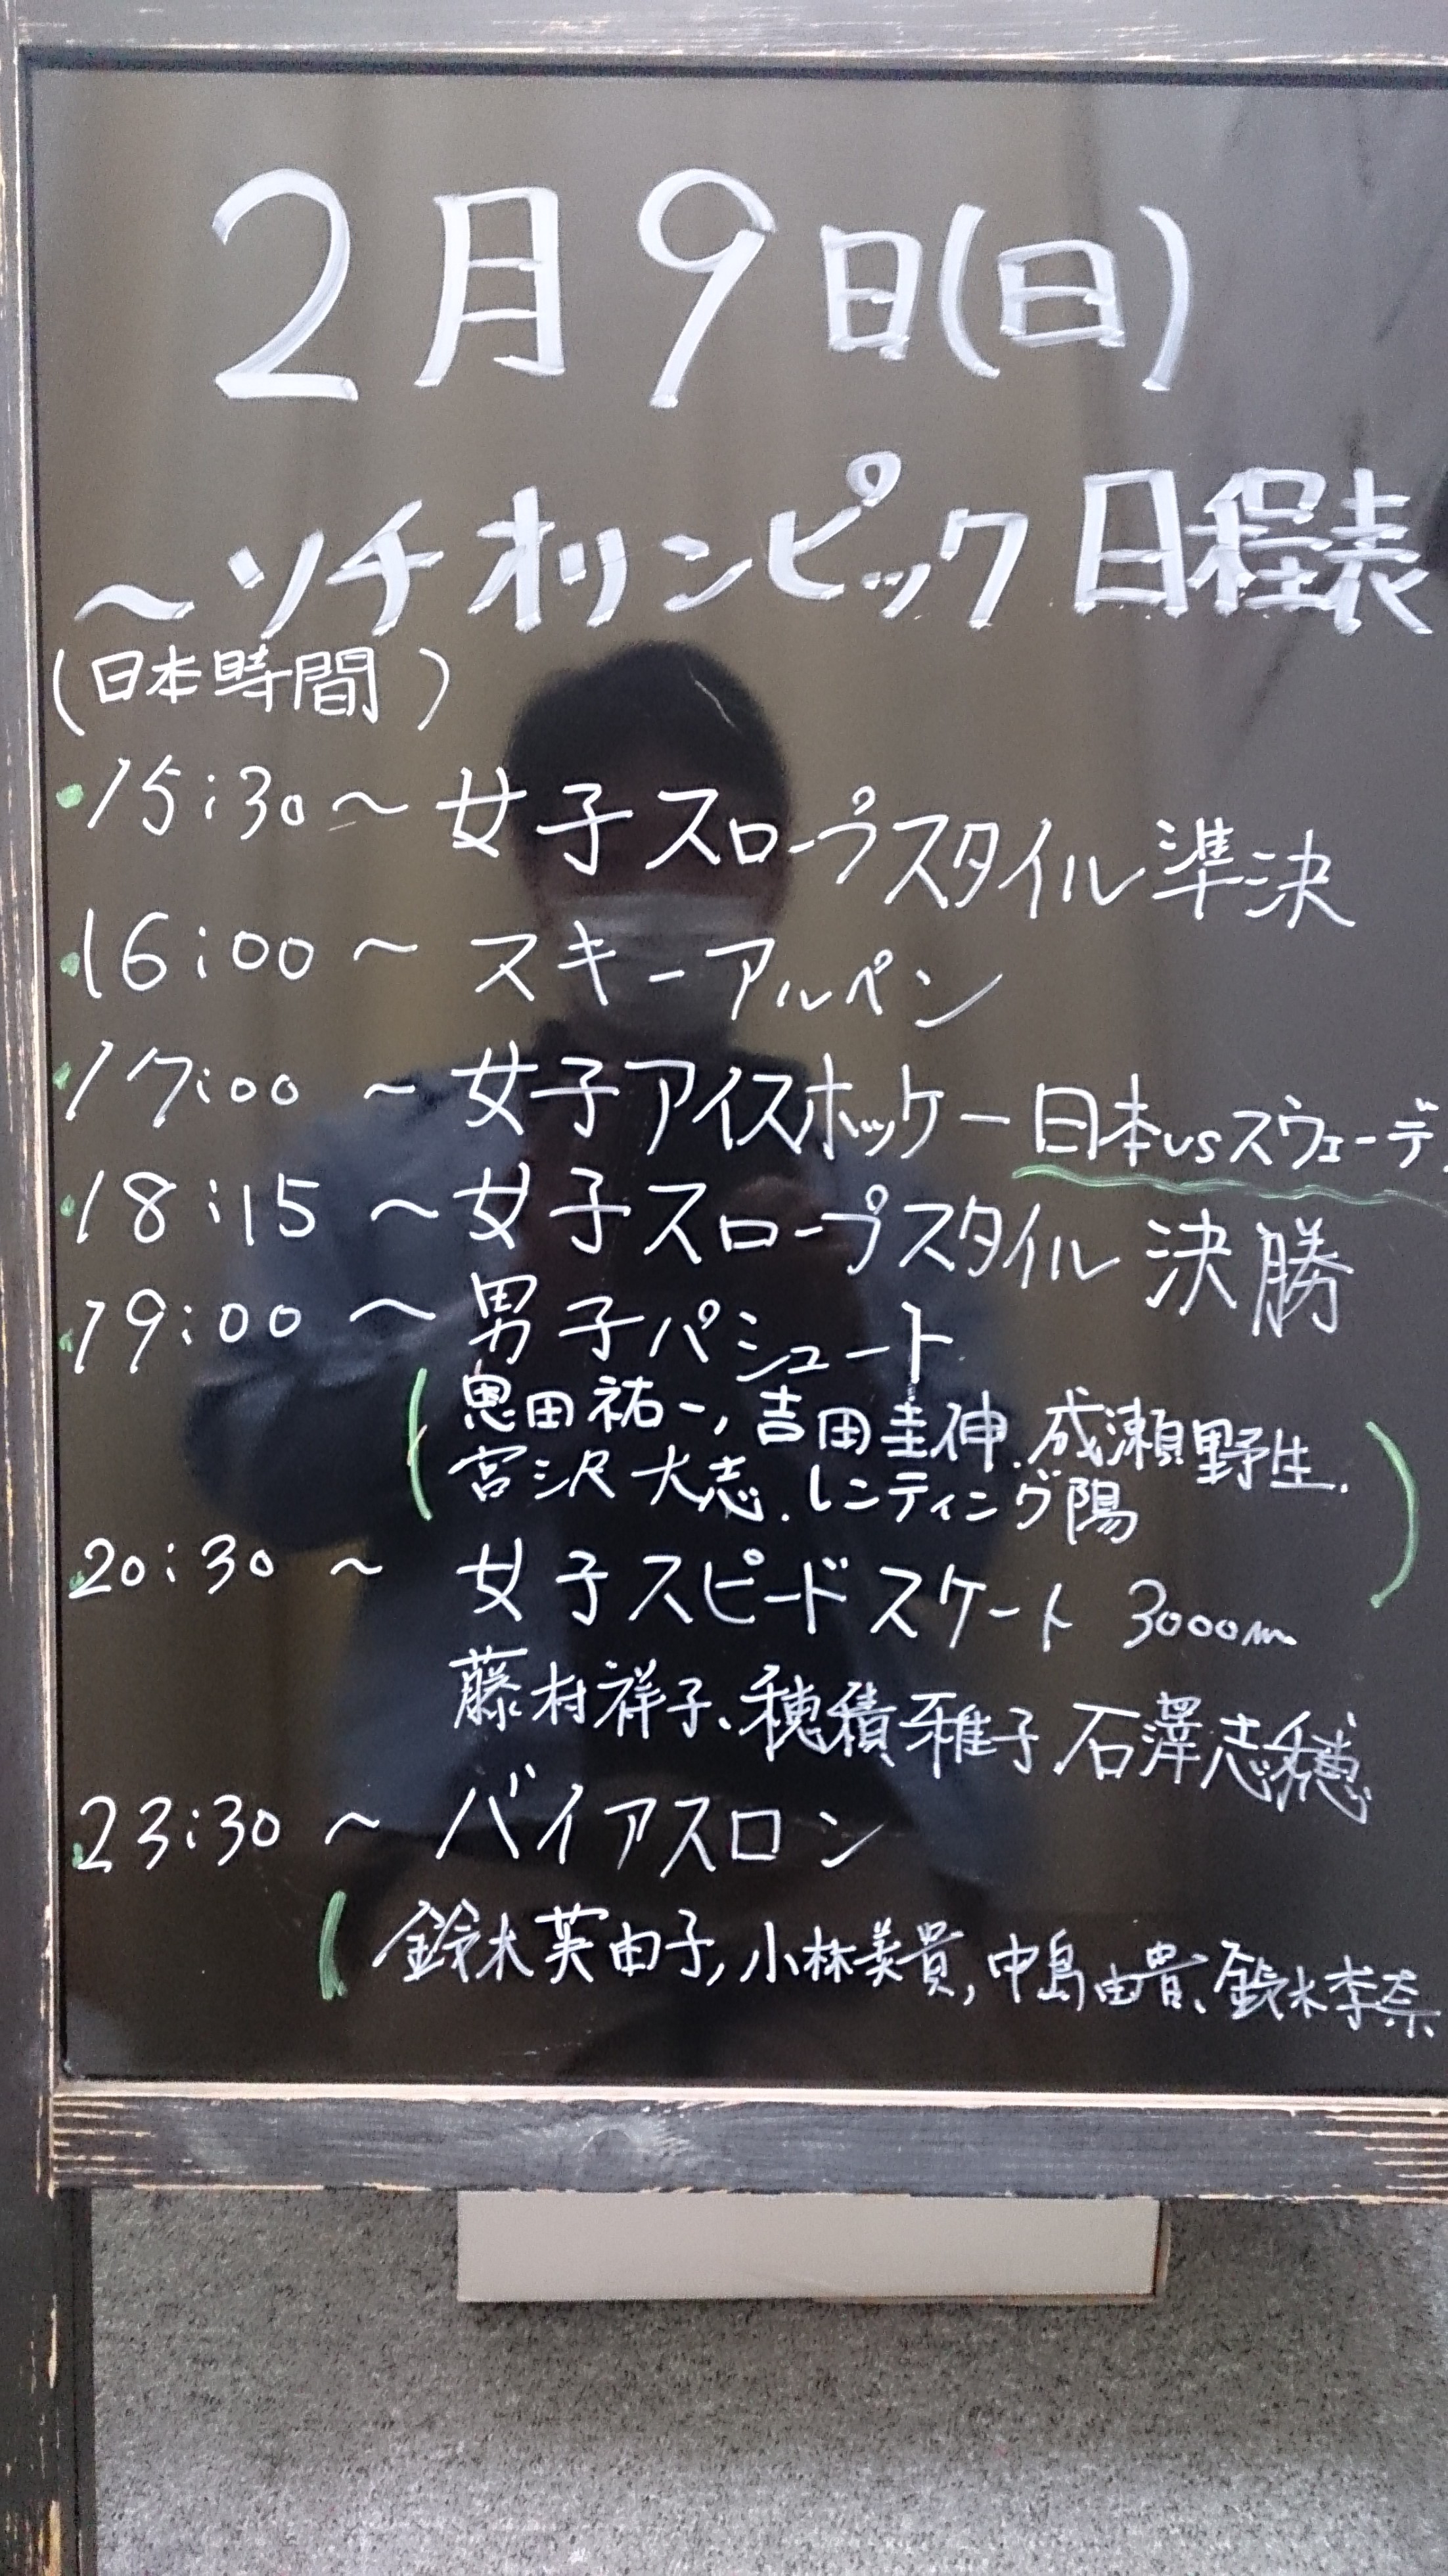 2月9日(日)
～ソチオリンピック日程表
(日本時間)
・15:30～女子スロープスタイル準決
・16:00～スキーアルペン
・17:00～女子アイスホッケー日本vsスウェーデ
・18:15～女子スロープスタイル 決勝
・19:00～男子パシュート
(恩田祐一,吉田圭伸.成瀬野生.
宮沢大志.レンティング陽)
・20:30～女子スピードスケート 3000m
藤村祥子、穂積雅子.石澤志穂
・23:30～バイアスロン
(鈴木芙由子,小林美貴,中島由貴、鈴木李奈